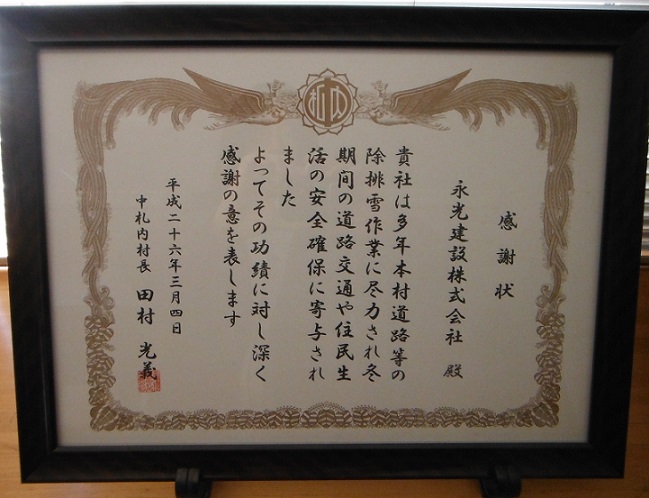 感謝状
永光建設株式会社 殿
貴社は多年本村道路等の
除排雪作業に尽力され冬
期間の道路交通や住民生
活の安全確保に寄与され
ました
よってその功績に対し深く
感謝の意を表します
平成二十六年三月四日
中札内村長 田村 光義